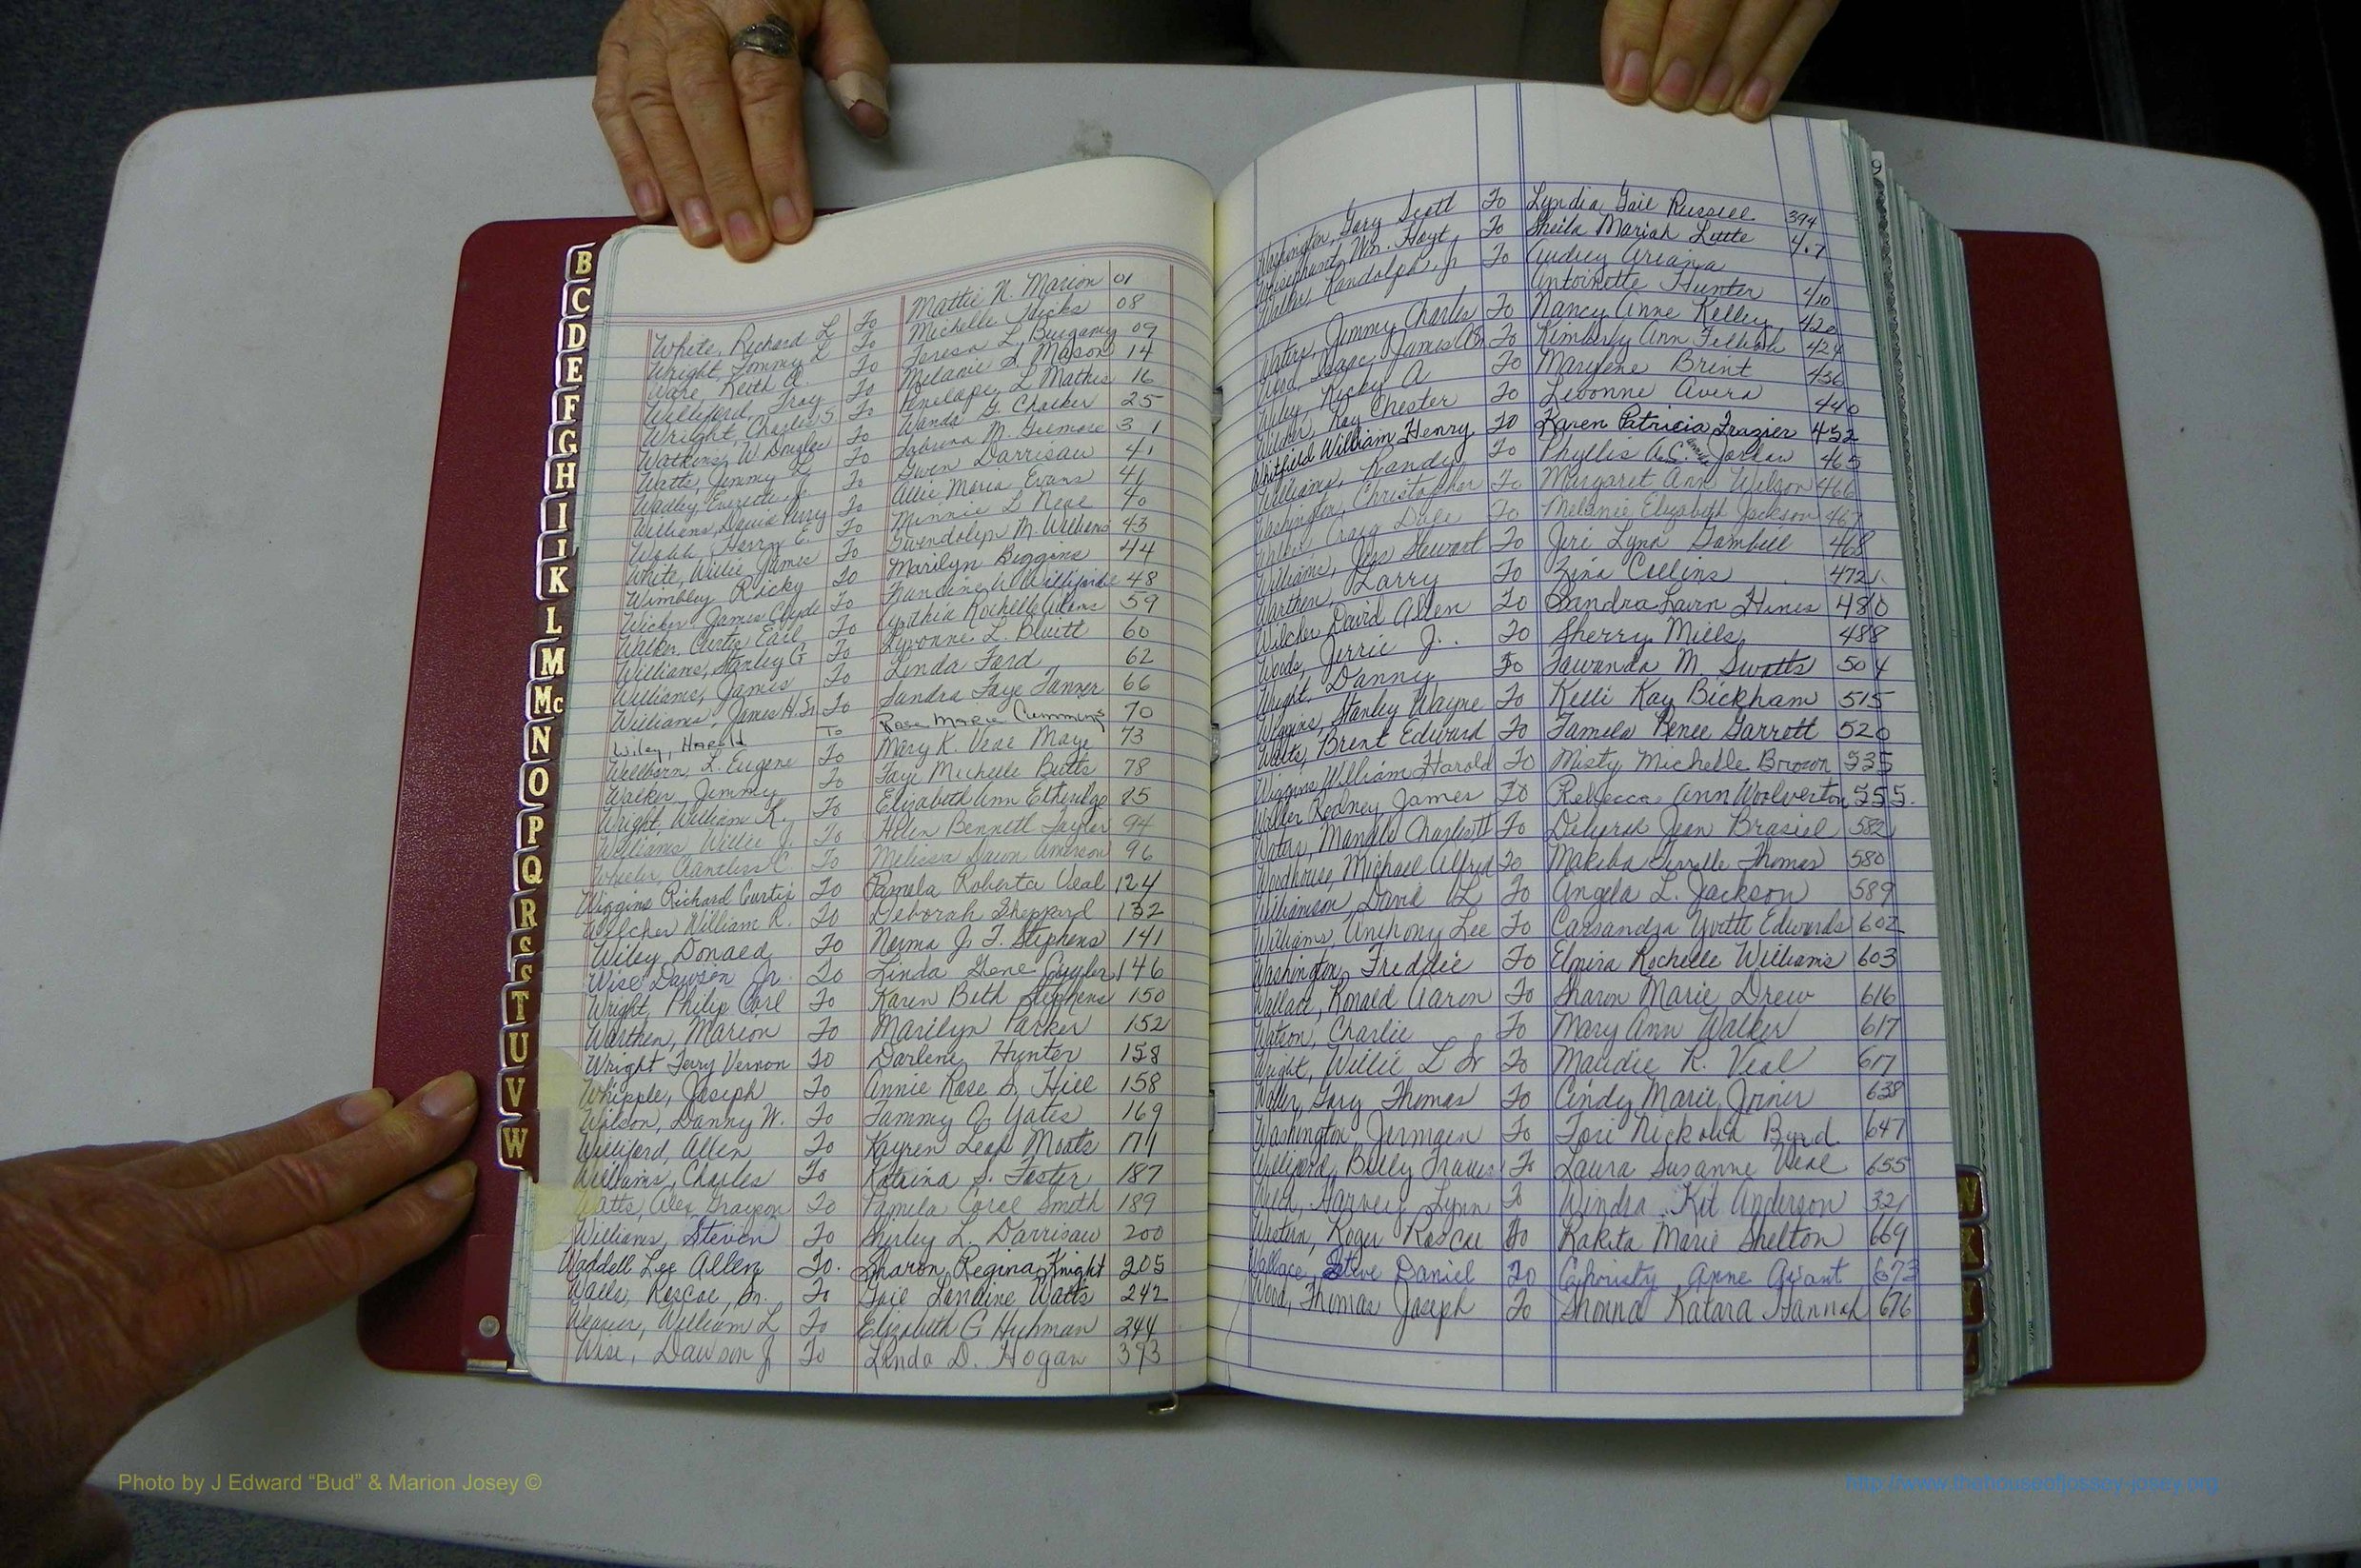 B
C
D
E
F
G
H
I
J
K
L
M
Mc
N
O
P
Q
R
S
S
T
U
V
W
White, Richard L To Mattie N. Marion 01
Wright, Tommy L To Michelle Hicks 08
Ware, Keith A. To Teresa L. Burgamy 09
Williford, Troy To Melanie S. Mason 14
Wright, Charles S To Penelope L Mathis 16
Watkins, W. Douglas To Wanda G. Chalker 25
Watts, Jimmy L. To Sabrina M. Gilmore 31
Wadley, Everette Jr. To Gwen Darrisaw 41
Williams, David Perry To Allie Maria Evans 41
Webb, Harry E. To Minnie L Neal 40
White, Willie James To Gwendolyn M. Williams 43
Wimbley Ricky To Marilyn Biggins 44
Wicker, James Clyde To Francine A. 48
Walker, Curtis Earl To Cynthia Rochelle Adams 59
Williams, Stanley G To Lyvonne L. Bluitt 60
Williams, James To Linda Ford 62
Williams, James H. Sr To Sandra Faye Tanner 66
Wiley, Harold To Rose Marie Cummings 70
Wellborn, L. Eugene To Mary K. Veal Maye 73
Walker, Jimmy To Faye Michelle Butts 78
Wright, William K. To Elizabeth Ann Etheridge 85
Williams, Willie J. To Helen Bennett Taylor 94
Wheeler, C. To Melissa Dawn Amerson 96
Wiggins Richard Curtis To Pamela Roberta Veal 124
Welcher William R. To Deborah Sheppard 132
Wiley Donald To Norma J. T. Stephens 141
Wise Dawson Jr. To Linda Gene 146
Wright, Philip Carl To Karen Beth Stephens 150
Warthen, Marion To Marilyn Parker 152
Wright Terry Vernon To Darlene Hunter 158
Whipple, Joseph To Annie Rose S. Hill 158
Wilson, Danny W. To Tammy O. Yates 169
Williford, Allen To Kayren Leah Moats 171
Williams, Charles To Katrina S. Foster 187
Watts, Alex Grayson To Pamela Carol Smith 189
Williams, Steven To Shirley L. Darrisaw 200
Waddell Lee Allen To. Sharon Regina Knight 205
Walls, Roscoe, Sr. To Gail Loraine Watts 242
Weaver, William L To Elizabeth G Hichman 244
Wise, Dawson J To Linda D. Hogan 393
Washington, Gary Scott To Lyndia Gail Russell 394
Whisenhunt, Wm. Hoyt To Sheila Mariah Little 407
Walker Randolph, Jr To Audrey Ariana
Antoinette Hunter 410
Waters, Jimmy Charles To Nancy Anne Kelley 420
Wood, Isaac James To Kimberly Ann 424
Wiley, Ricky A To Marylene Brint 436
Wilder, Ray Chester To Levonne Avera 440
Whitfield William Henry To Karen Patricia Frazier 452
Williams, Randy To Phyllis A.C. Jordan 465
Washington, Christopher To Margaret Ann Wilson 466
Walker, Craig Dale To Melanie Elizabeth Jackson 467
Williams, Jess Stewart To Jeri Lynn Gambell 468
Warthen, Larry To Zina Collins 472
Wilcher David Allen To Sandra Hines 480
Woods, Jerrie J. To Sherry Mills 488
Wright, Danny To Tawanda M. Swatts 504
Wiggins, Stanley Wayne To Kelli Kay Bickham 515
Watts, Brent Edward To Pamela Renee Garrott 520
Wiggins William Harold To Misty Michelle Brown 535
Walker Rodney James To Rebecca Ann Woolverton 555.
Waters, Mangle Charles II To Deborah Jean Brasiel 582
Woodhouse, Michael Alfred To Makeba Thomas 580
Williamson, David L To Angela L. Jackson 589
Williams, Anthony Lee To Cassandra Yvette Edwards 602
Washington, Freddie To Elmira Rochelle Williams 603
Wallace, Ronald Aaron To Sharon Marie Drew 616
Watson, Charlie To Mary Ann Walker 617
Wright, Willie L Sr To Maudie R. Veal 617
Waller, Gary Thomas To Cindy Marie Joiner 638
Washington, Jermaen To Tori Byrd 647
Williford, Billy Travis To Laura Susanne Veal 655
Harvey Lynn To Windra Kit Anderson 321
Western, Roger Roscoe To Rakita Marie Shelton 669
Wallace, Steve Daniel To Christy Anne Avant 673
Wood, Thomas Joseph To Shonna Katara Hannah 676
Photo by J Edward “Bud” & Marion Josey ©
http://www.thehouseofjossey-josey.org